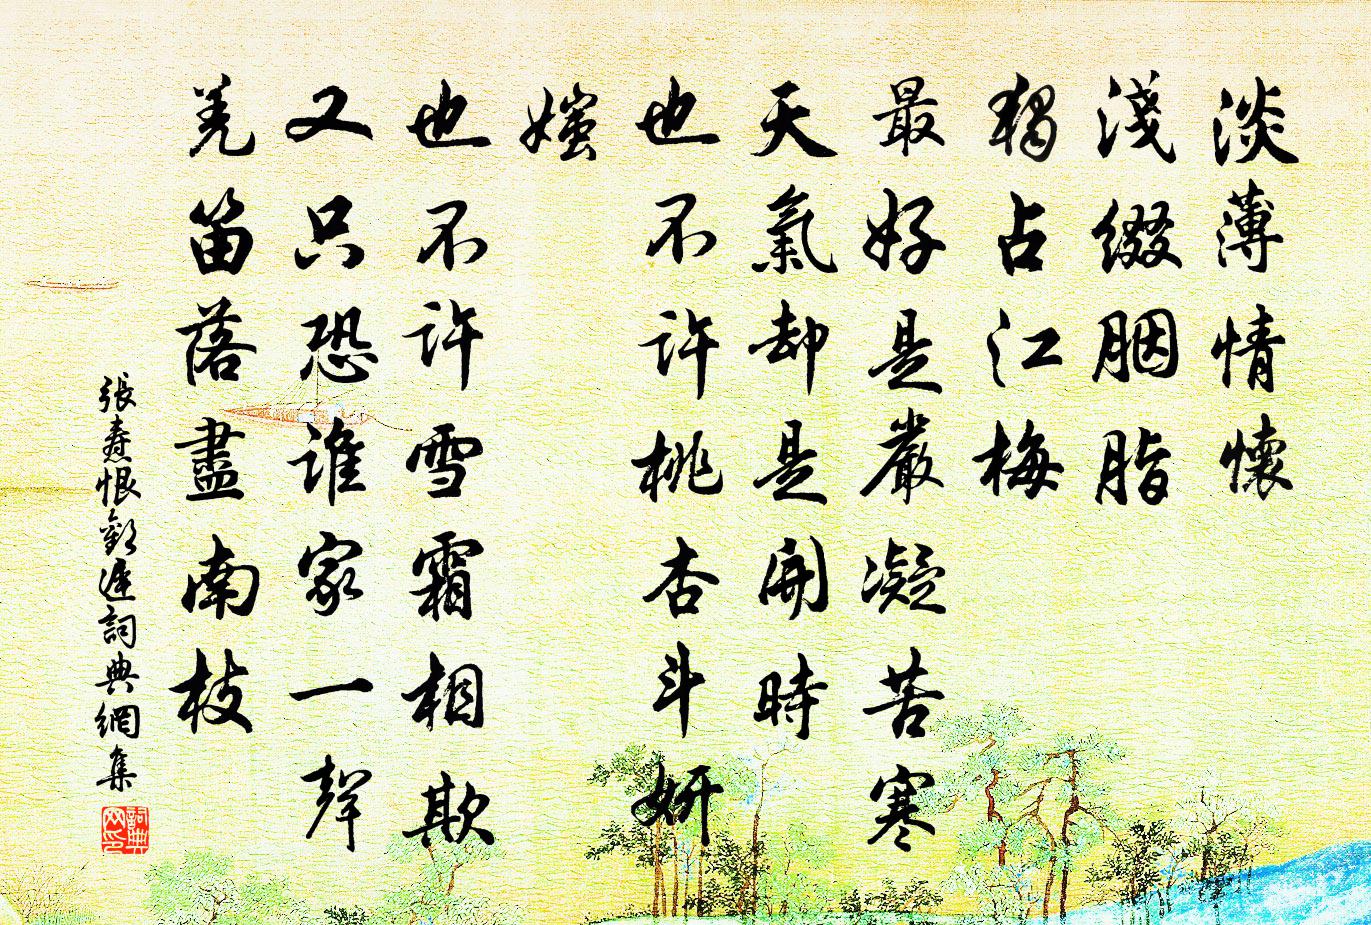 淡薄情懷
淺綴胭脂
獨占江梅
最好是嚴凝苦寒
天氣却是開時
也不許桃杏斗妍
媸
也不許雪霜相欺
又只恐誰家一聲
羌笛落盡南枝
張燾恨歡遲詞典網集
詞典網印